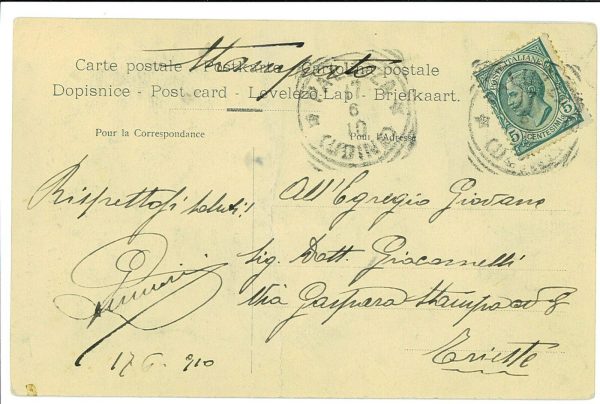 Stampato
Carte postale - Postkarte - Cartolina postale
Dopisnice - Post card - Levelező Lap - Briefkaart.
Pour la Correspondance
Pour l'Adresse
17
6
10
(UDINE)
POSTE ITALIANE
5 CENTESIMI 5
Rispettosi saluti!
17 6 910
All'Egregio Giovane
Sig. Dott. Giacomelli
Via Gaspara Stampa
Trieste